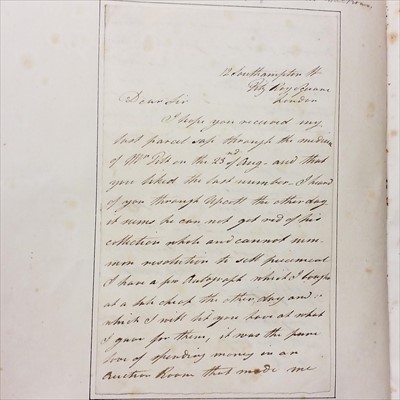 12 Southampton St
Fitz Roy Square
London
Dear Sir
I hope you received my
last parcel safe through the medium
of Mr on the 23rd of Aug - and that
you liked the last number - I heard
of you through Upcott the other day
it seems he can not get rid of his
collection whole and cannot sum-
mon resolution to sell piecemeal
I have a few Autograph which I bought
at a sale cheap the other day and
which I will let you have at what
I gave for them, it was the pure
love of spending money in an
Auction Room that made me